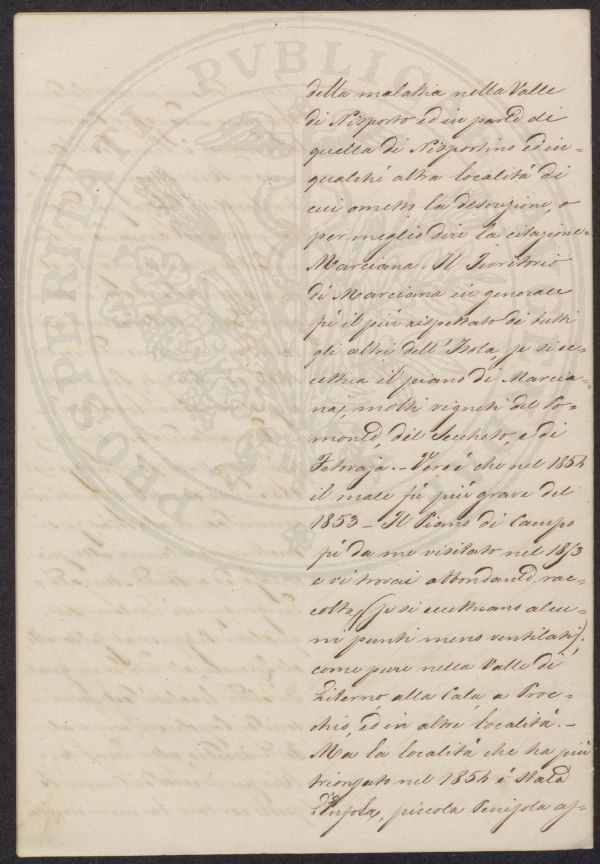 della malattia nella Valle
di Nisporto ed in parte di
quella di Nisportino ed in=
qualche altra località di
cui ometto la descrizione, o
per meglio dire la citazione=
Marciana. Il Territorio
di Marciana in generale
fù il più rispettato di tutti
gli altri dell'Isola, se si ec=
cettua il piano di Marcia=
na, molti vigneti del Po=
monte, del Seccheto, e di
Fetovaja. – Vero è che nel 1854
il male fù più grave del
1853 – Il Piano di Campo
fù da me visitato nel 1853
e vi trovai abbondante rac=
colta, (se si eccettuano alcu=
ni punti meno ventilati).
come pure nella Valle di
Literno, alla Cala, a Proc=
chio, ed in altre località. –
Ma la località che ha più
trionfato nel 1854 è stata
L'Enfola, piccola Penisola af=
PROSPERITATI PVBLIC